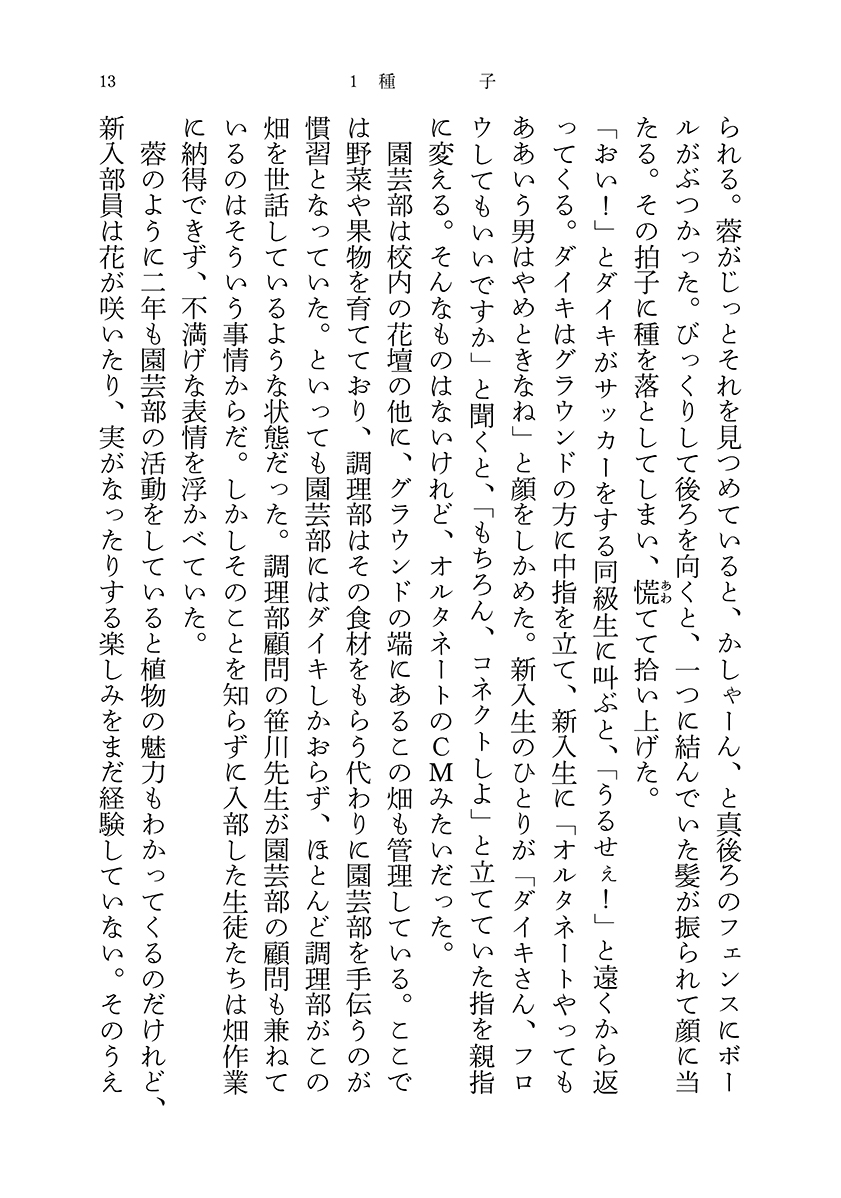 13
1 種 子
られる。蓉がじっとそれを見つめていると、かしゃーん、と真後ろのフェンスにボー
ルがぶつかった。びっくりして後ろを向くと、一つに結んでいた髪が振られて顔に当
たる。その拍子に種を落としてしまい、慌あわてて拾い上げた。
「おい！」とダイキがサッカーをする同級生に叫ぶと、「うるせぇ！」と遠くから返
ってくる。ダイキはグラウンドの方に中指を立て、新入生に「オルタネートやっても
ああいう男はやめときなね」と顔をしかめた。新入生のひとりが「ダイキさん、フロ
ウしてもいいですか」と聞くと、「もちろん、コネクトしよ」と立てていた指を親指
に変える。そんなものはないけれど、オルタネートのCMみたいだった。
園芸部は校内の花壇の他に、グラウンドの端にあるこの畑も管理している。ここで
は野菜や果物を育てており、調理部はその食材をもらう代わりに園芸部を手伝うのが
慣習となっていた。といっても園芸部にはダイキしかおらず、ほとんど調理部がこの
畑を世話しているような状態だった。調理部顧問の笹川先生が園芸部の顧問も兼ねて
いるのはそういう事情からだ。しかしそのことを知らずに入部した生徒たちは畑作業
に納得できず、不満げな表情を浮かべていた。
蓉のように二年も園芸部の活動をしていると植物の魅力もわかってくるのだけれど、
新入部員は花が咲いたり、実がなったりする楽しみをまだ経験していない。そのうえ